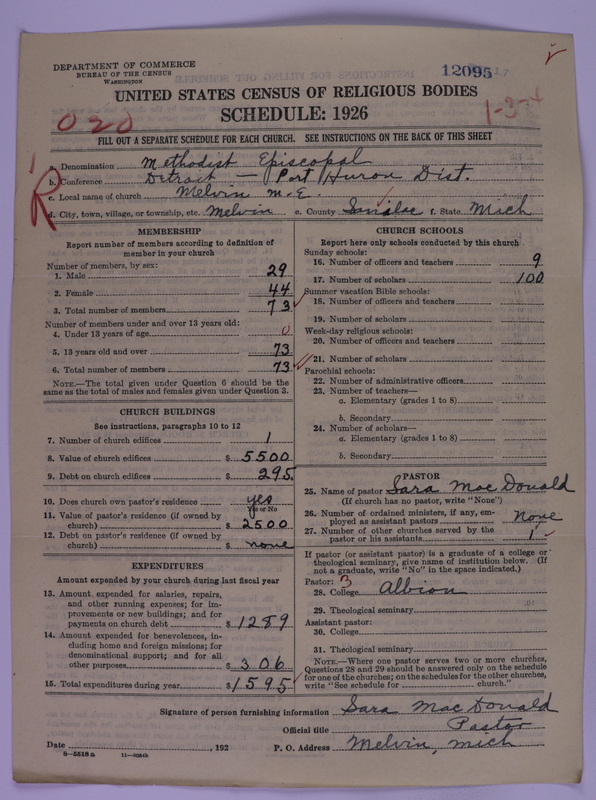 DEPARTMENT OF COMMERCE
BUREAU OF THE CENSUS
WASHINGTON
12095
UNITED STATES CENSUS OF RELIGIOUS BODIES
SCHEDULE: 1926
1-3-4
020
FILL OUT A SEPARATE SCHEDULE FOR EACH CHURCH. SEE INSTRUCTIONS ON THE BACK OF THIS SHEET
a. Denomination Methodist Episcopal
b. Conference Detroit — Port Huron Dist.
c. Local name of church Melvin M. E.
d. City, town, village, or township, etc. Melvin e. County Sanilac f. State Mich
R
MEMBERSHIP
Report number of members according to definition of
member in your church
Number of members, by sex:
1. Male 29
2. Female 44
3. Total number of members 73
Number of members under and over 13 years old:
4. Under 13 years of age 0
5. 13 years old and over 73
6. Total number of members 73
NOTE.—The total given under Question 6 should be the
same as the total of males and females given under Question 3.
CHURCH BUILDINGS
See instructions, paragraphs 10 to 12
7. Number of church edifices 1
8. Value of church edifices $ 5500
9. Debt on church edifices $ 295
10. Does church own pastor's residence yes
Yes or No
11. Value of pastor's residence (if owned by
church) $ 2500
12. Debt on pastor's residence (if owned by
church) $ none
EXPENDITURES
Amount expended by church during last fiscal year
13. Amount expended for salaries, repairs,
and other running expenses; for im-
provements or new buildings; and for
payments on church debt $ 1289
14. Amount expended for benevolences, in-
cluding home and foreign missions; for
denominational support; and for all
other purposes $ 306
15. Total expenditures during year $ 1595
CHURCH SCHOOLS
Report here only schools conducted by this church
Sunday schools:
16. Number of officers and teachers 9
17. Number of scholars 100
Summer vacation Bible schools:
18. Number of officers and teachers
19. Number of scholars
Week-day religious schools:
20. Number of officers and teachers
21. Number of scholars
Parochial schools:
22. Number of administrative officers
23. Number of teachers—
a. Elementary (grades 1 to 8)
b. Secondary
24. Number of scholars—
a. Elementary (grades 1 to 8)
b. Secondary
PASTOR
25. Name of pastor Sara MacDonald
(If church has no pastor, write "None")
26. Number of ordained ministers, if any, em-
ployed as assistant pastors none
27. Number of other churches served by the
pastor or his assistants 1
If pastor (or assistant pastor) is a graduate of a college or
theological seminary, give name of institution below. (If
not a graduate, write "No" in the space indicated.)
Pastor: 3
28. College Albion
29. Theological seminary
Assistant pastor:
30. College
31. Theological seminary
NOTE.—Where one pastor serves two or more churches,
Questions 28 and 29 should be answered only on the schedule
for one of the churches; on the schedules for the other churches,
write "See schedule for church."
Signature of person furnishing information Sara MacDonald
Official title Pastor
Date , 192 P. O. Address Melvin, Mich
8—5518a